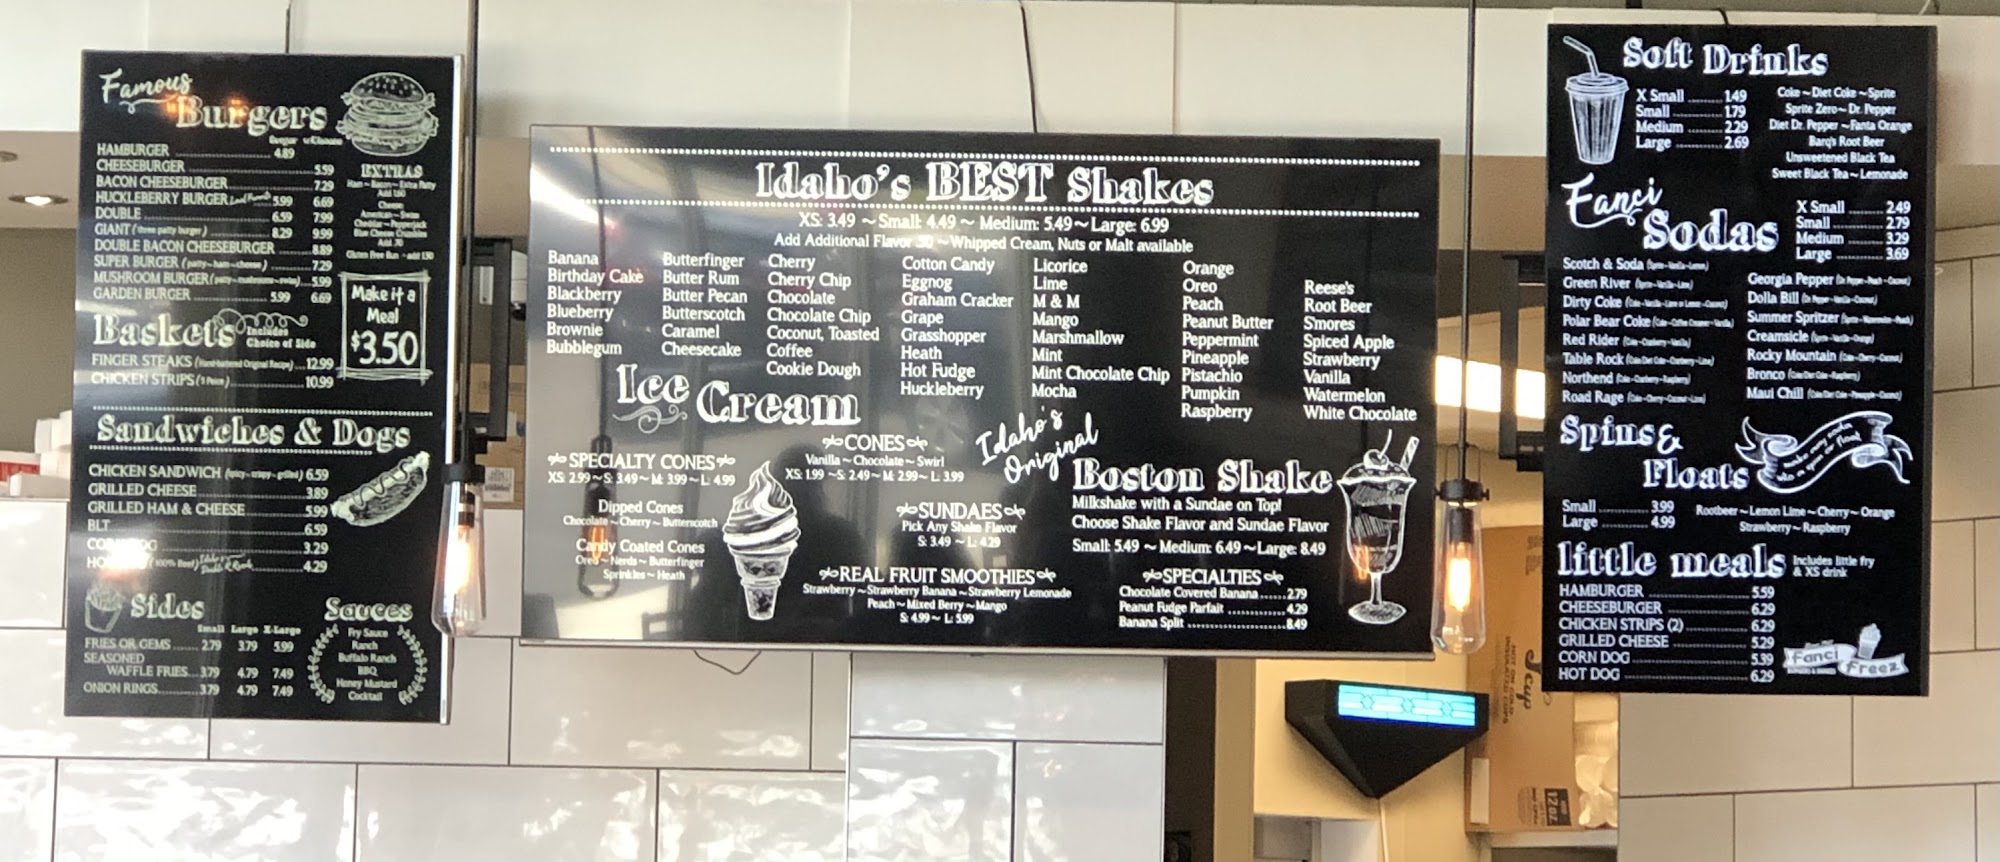 Famous
Burgers
Burger w/Cheese
HAMBURGER 4.89
CHEESEBURGER 5.59
BACON CHEESEBURGER 7.29
HUCKLEBERRY BURGER Local Favorite 5.99 6.69
DOUBLE 6.59 7.99
GIANT (three patty burger) 8.29 9.99
DOUBLE BACON CHEESEBURGER 8.89
SUPER BURGER (patty~ham~cheese) 7.29
MUSHROOM BURGER (patty~mushrooms~swiss) 5.99
GARDEN BURGER 5.99 6.69
EXTRAS
Ham ~ Bacon ~ Extra Patty
Add 1.60
Cheese
American ~ Swiss
Cheddar ~ Pepperjack
Blue Cheese Crumbles
Add .70
Gluten Free Bun ~ add 1.50
Make it a
Meal
$3.50
Baskets Includes
Choice of Side
FINGER STEAKS (Hand-battered Original Recipe) 12.99
CHICKEN STRIPS (3 Piece) 10.99
Sandwiches & Dogs
CHICKEN SANDWICH (spicy ~ crispy ~ grilled) 6.59
GRILLED CHEESE 3.89
GRILLED HAM & CHEESE 5.99
BLT 6.59
CORN DOG 3.29
(100% Beef) 4.29
Sides
Small Large X-Large
FRIES OR GEMS 2.79 3.79 5.99
SEASONED
WAFFLE FRIES 3.79 4.79 7.49
ONION RINGS 3.79 4.79 7.49
Sauces
Fry Sauce
Ranch
Buffalo Ranch
BBQ
Honey Mustard
Cocktail
Idaho's BEST Shakes
XS: 3.49 ~ Small: 4.49 ~ Medium: 5.49 ~ Large: 6.99
Add Additional Flavor .50 ~ Whipped Cream, Nuts or Malt available
Banana
Birthday Cake
Blackberry
Blueberry
Brownie
Bubblegum
Butterfinger
Butter Rum
Butter Pecan
Butterscotch
Caramel
Cheesecake
Cherry
Cherry Chip
Chocolate
Chocolate Chip
Coconut, Toasted
Coffee
Cookie Dough
Cotton Candy
Eggnog
Graham Cracker
Grape
Grasshopper
Heath
Hot Fudge
Huckleberry
Licorice
Lime
M & M
Mango
Marshmallow
Mint
Mint Chocolate Chip
Mocha
Orange
Oreo
Peach
Peanut Butter
Peppermint
Pineapple
Pistachio
Pumpkin
Raspberry
Reese's
Root Beer
S'mores
Spiced Apple
Strawberry
Vanilla
Watermelon
White Chocolate
Ice Cream
SPECIALTY CONES
XS: 2.99 ~ S: 3.49 ~ M: 3.99 ~ L: 4.99
Dipped Cones
Chocolate ~ Cherry ~ Butterscotch
Candy Coated Cones
Oreo ~ Nerds ~ Butterfinger
Sprinkles ~ Heath
CONES
Vanilla ~ Chocolate ~ Swirl
XS: 1.99 ~ S: 2.49 ~ M: 2.99 ~ L: 3.99
SUNDAES
Pick Any Shake Flavor
S: 3.49 ~ L: 4.29
REAL FRUIT SMOOTHIES
Strawberry ~ Strawberry Banana ~ Strawberry Lemonade
Peach ~ Mixed Berry ~ Mango
S: 4.99 ~ L: 5.99
Idaho's
Original
Boston Shake
Milkshake with a Sundae on Top!
Choose Shake Flavor and Sundae Flavor
Small: 5.49 ~ Medium: 6.49 ~ Large: 8.49
SPECIALTIES
Chocolate Covered Banana 2.79
Peanut Fudge Parfait 4.29
Banana Split 8.49
Soft Drinks
X Small 1.49
Small 1.79
Medium 2.29
Large 2.69
Coke ~ Diet Coke ~ Sprite
Sprite Zero ~ Dr. Pepper
Diet Dr. Pepper ~ Fanta Orange
Barq's Root Beer
Unsweetened Black Tea
Sweet Black Tea ~ Lemonade
Fanci
Sodas
X Small 2.49
Small 2.79
Medium 3.29
Large 3.69
Scotch & Soda (Sprite ~ Vanilla ~ Lemon)
Green River (Sprite ~ Vanilla ~ Lime)
Dirty Coke
Polar Bear Coke (Coke ~ Coffee Creamer ~ Vanilla)
Red Rider (Coke ~ Cranberry ~ Vanilla)
Table Rock (Coke/Diet Coke ~ Cranberry ~ Lime)
Northend (Coke ~ Cranberry ~ Raspberry)
Road Rage (Coke ~ Cherry ~ Coconut ~ Lime)
Georgia Pepper (Dr. Pepper ~ Peach ~ Coconut)
Dolla Bill (Dr. Pepper ~ Vanilla ~ Coconut)
Summer Spritzer (Sprite ~ Watermelon ~ Peach)
Creamsicle (Sprite ~ Vanilla ~ Orange)
Rocky Mountain (Coke ~ Cherry ~ Coconut)
Bronco (Coke/Diet Coke ~ Raspberry)
Maui Chill (Coke/Diet Coke ~ Pineapple ~ Coconut)
Spins &
Floats
make any soda
into a spin or float
Small 3.99
Large 4.99
Rootbeer ~ Lemon Lime ~ Cherry ~ Orange
Strawberry ~ Raspberry
little meals Includes little fry
& XS drink
HAMBURGER 5.59
CHEESEBURGER 6.29
CHICKEN STRIPS (2) 6.29
GRILLED CHEESE 5.29
CORN DOG 5.39
HOT DOG 6.29
Fanci Freez
12 oz.